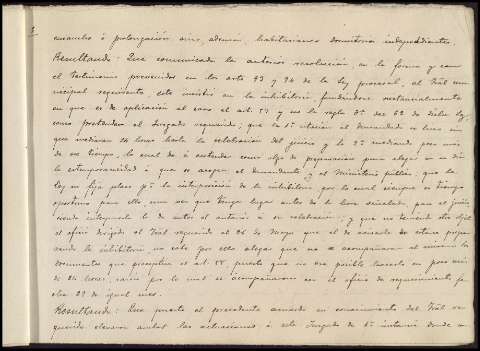 ensanche ó prolongación sino, además, habitaciones dormitorios independientes.
Resultando: Que comunicada la anterior resolución, en la forma y con
el testimonio prevenidos en los arts 93 y 94 de la ley procesal, el Tral mu-
nicipal requirente este insistió en la inhibitoria, fundándose sustancialmente
en que es de aplicación al caso el art. 57 y no la regla 2ª del 62 de dicha ley,
como pretenden el Juzgado requerido; que la 1ª citación al demandado se hizo sin
que mediaran 24 horas hasta la celebración del juicio y la 2ª mediando poco más
de ese tiempo, lo cual de á entender como algo de preparación para alegar en su día
la extemporaneidad á que se acogen el demandante y el Ministerio público, que la
ley no fija plazo pª la interposición de la inhibitoria, por lo cual siempre es tiempo
oportuno para ello, una vez que tenga lugar antes de la hora señalada para el juicio
siendo integrante la de autos el anterior á su celebración; y que no teniendo otro objeto
el oficio dirigido al Tral requerido el 26 de Mayo que el de avisarle de estarse prepa-
rando la inhibitoria no cabe por ello alegar que no se acompañaron al mismo los
documentos que preceptúa el art. 88, puesto que no era posible hacerlo en poco más
de 24 horas, razón por la cual se acompañaron con el oficio de requerimiento, fe-
cha 29 de igual mes.
Resultando: Que puesto el precedente acuerdo en conocimiento del Tral re-
querido elevaron ambos las actuaciones á este Juzgado de 1ª instancia donde se